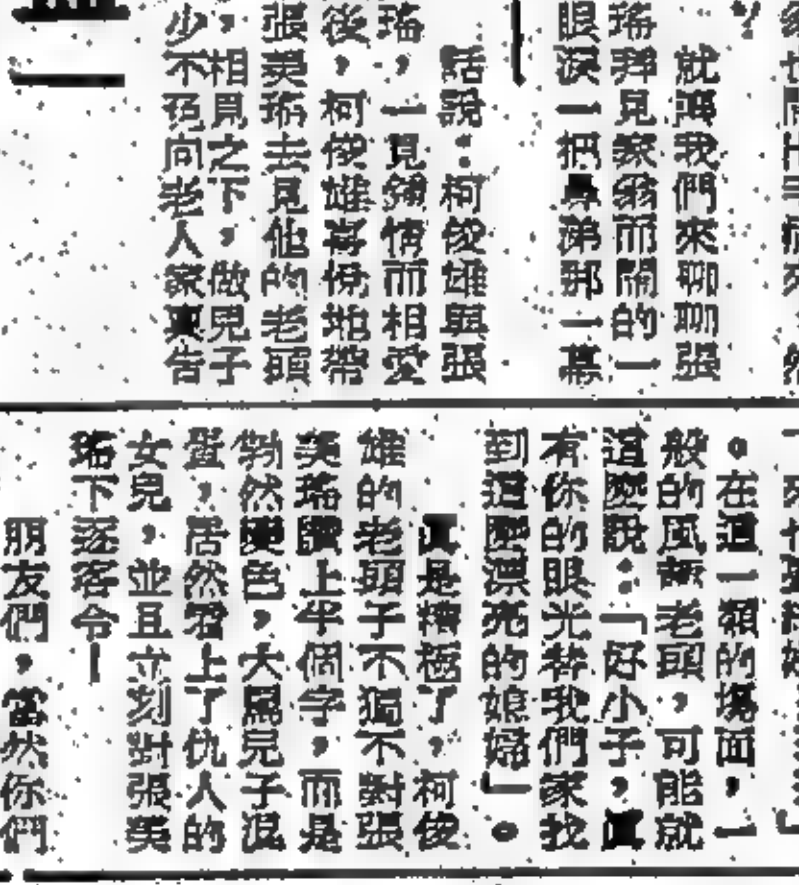 就讓我們來聊聊張
瑤拜見家翁而鬧的一
眼淚一把鼻涕那一幕
話說：柯俊雄與張
瑤，一見鍾情而相愛
後，柯俊雄喜悅地帶
張美瑤去見他的老頭
，相見之下，做兒子
少不免向老人家稟告
。在這一類的場面，一
般的風趣老頭，可能就
這麼說：「好小子，真
有你的眼光替我們家找
到這麼漂亮的媳婦」。
真是糟極了，柯俊
雄的老頭子不獨不對張
美瑤讚上半個字，而是
勃然變色，大罵兒子混
蛋，居然看上了仇人的
女兒，並且立刻對張美
瑤下逐客令！
朋友們，當然你們